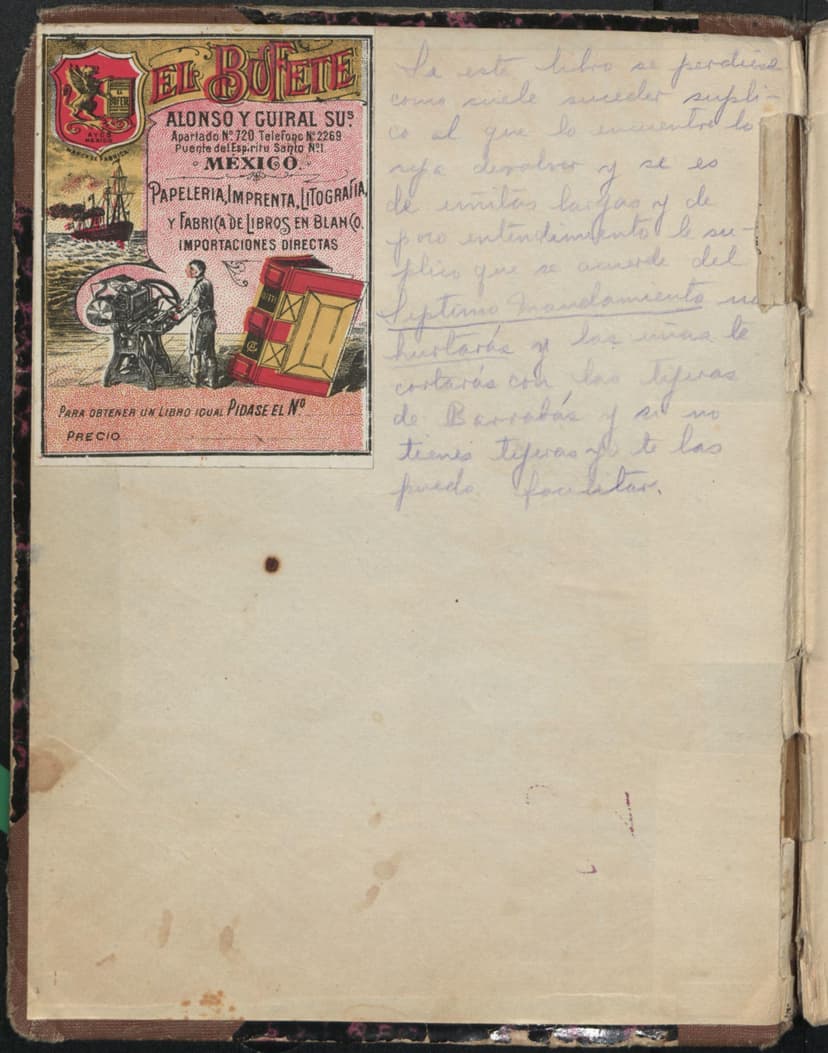 EL BUFETE
ALONSO Y GUIRAL SUS
Apartado Nº 720 Telefono Nº 2269
Puente del Espiritu Santo Nº 1
MÉXICO.
PAPELERIA, IMPRENTA, LITOGRAFIA,
Y FABRICA DE LIBROS EN BLANCO.
IMPORTACIONES DIRECTAS
PARA OBTENER UN LIBRO IGUAL PIDASE EL Nº
PRECIO
Si este libro se perdiese
como suele suceder supli-
co al que lo encuentre lo
sepa devolver y si es
de uñitas largas y de
poco entendimiento le su-
plico que se acuerde del
Septimo Mandamiento no
hurtarás y las uñas te
cortarás con las tijeras
de Barrabás y si no
tienes tijeras yo te las
puedo facilitar.